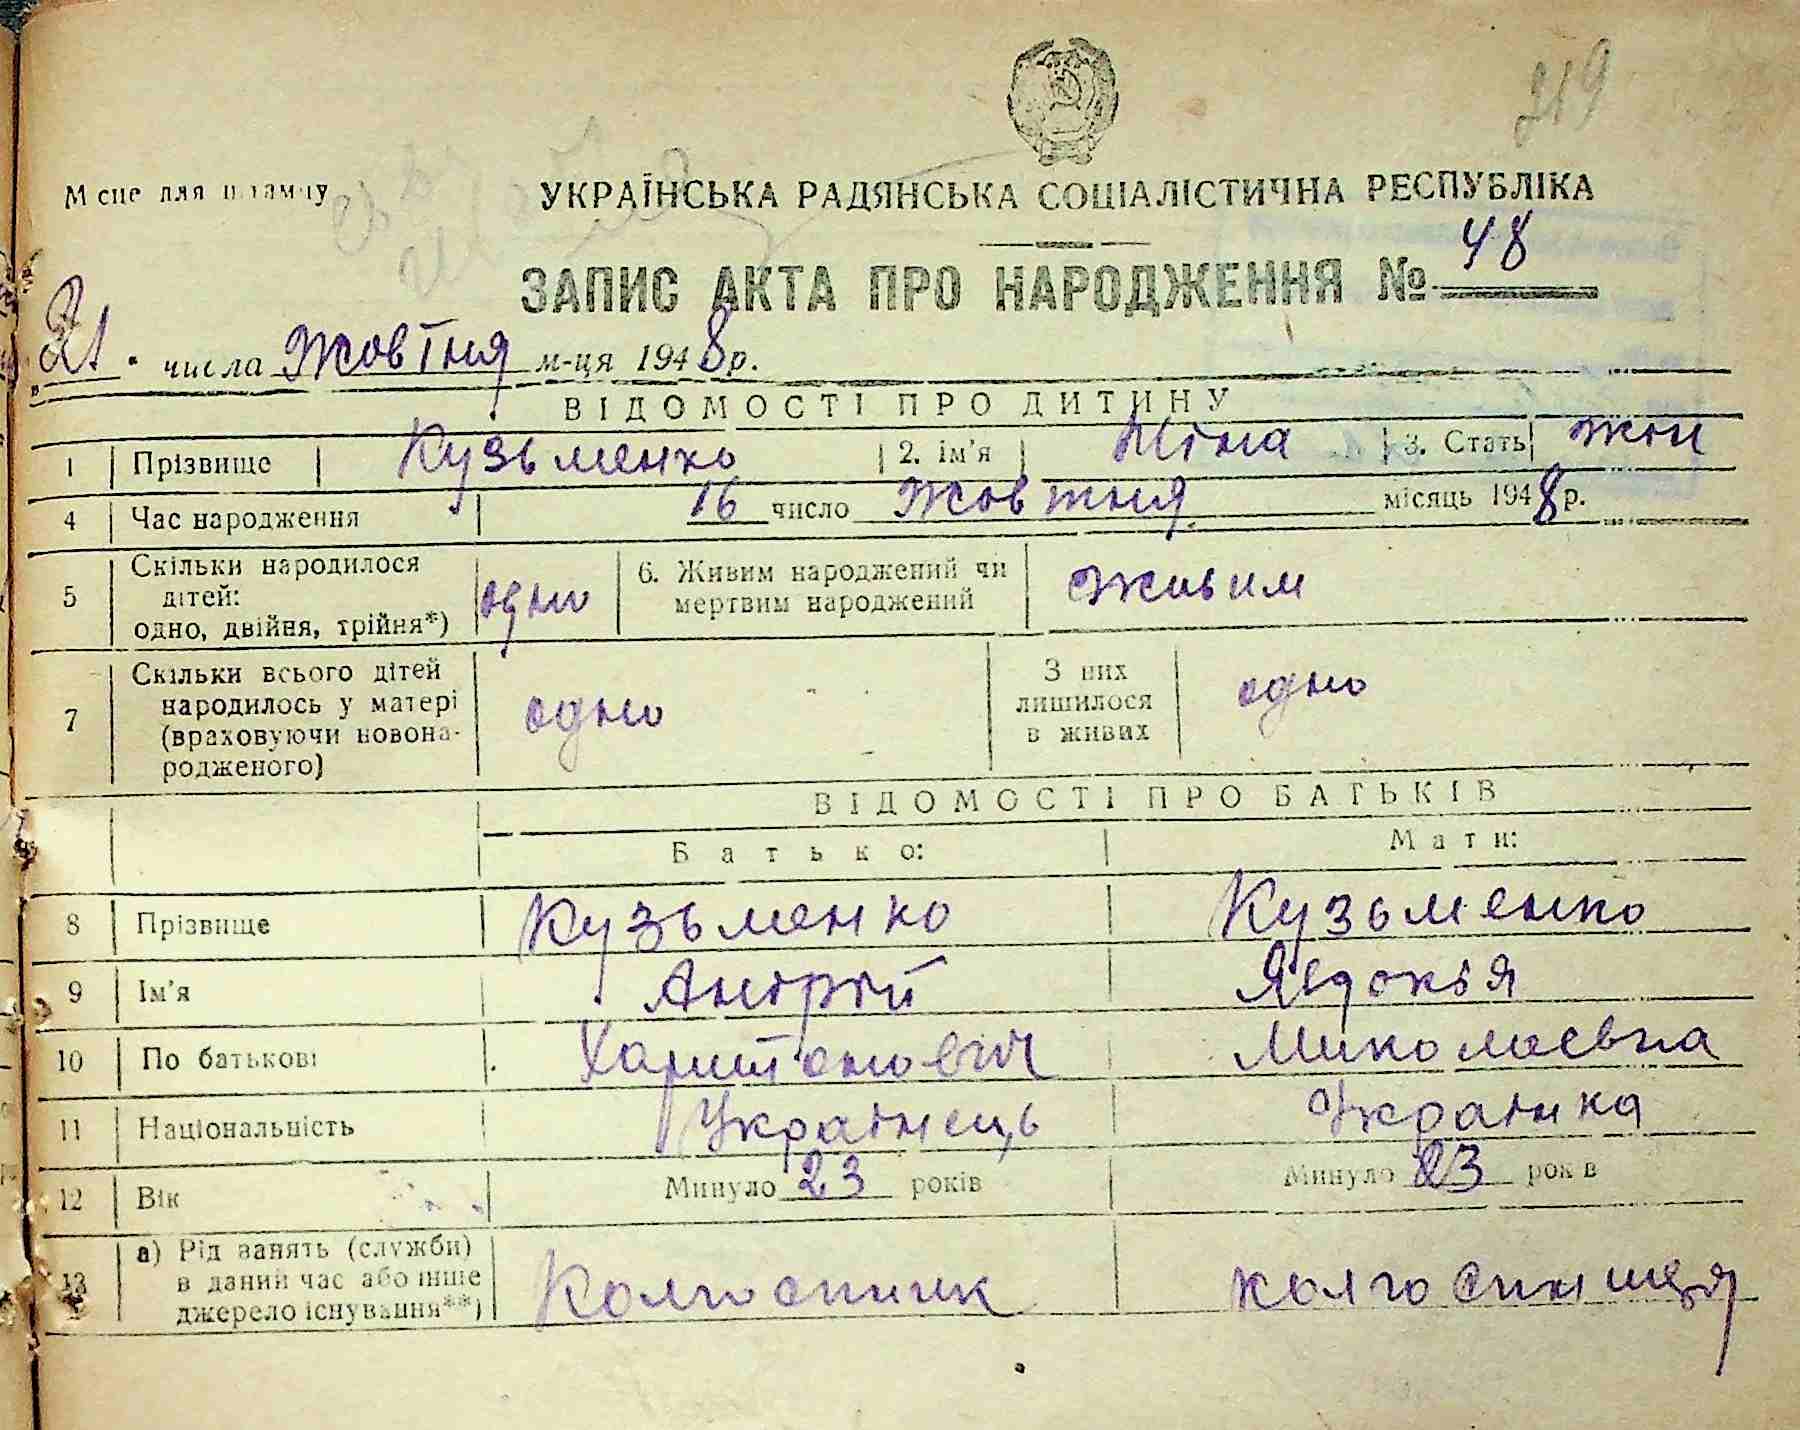 219
Місце для штампу
УКРАЇНСЬКА РАДЯНСЬКА СОЦІАЛІСТИЧНА РЕСПУБЛІКА
ЗАПИС АКТА ПРО НАРОДЖЕННЯ № 48
„21" числа Жовтня м-ця 1948 р.
ВІДОМОСТІ ПРО ДИТИНУ
1 Прізвище Кузьменко 2. ім'я Ніна 3. Стать жен
4 Час народження 16 число Жовтня місяць 1948 р.
5 Скільки народилося дітей: одно, двійня, трійня*) одно 6. Живим народжений чи мертвим народжений живим
7 Скільки всього дітей народилось у матері (враховуючи новонародженого) одно З них лишилося в живих одно
ВІДОМОСТІ ПРО БАТЬКІВ
Батько: Мати:
8 Прізвище Кузьменко Кузьменко
9 Ім'я Андрій Явдокія
10 По батькові Харитонович Миколаєвна
11 Національність Українець Українка
12 Вік Минуло 23 років Минуло 23 років
13 а) Рід занять (служби) в даний час або інше джерело існування**) Колгоспник колгоспниця